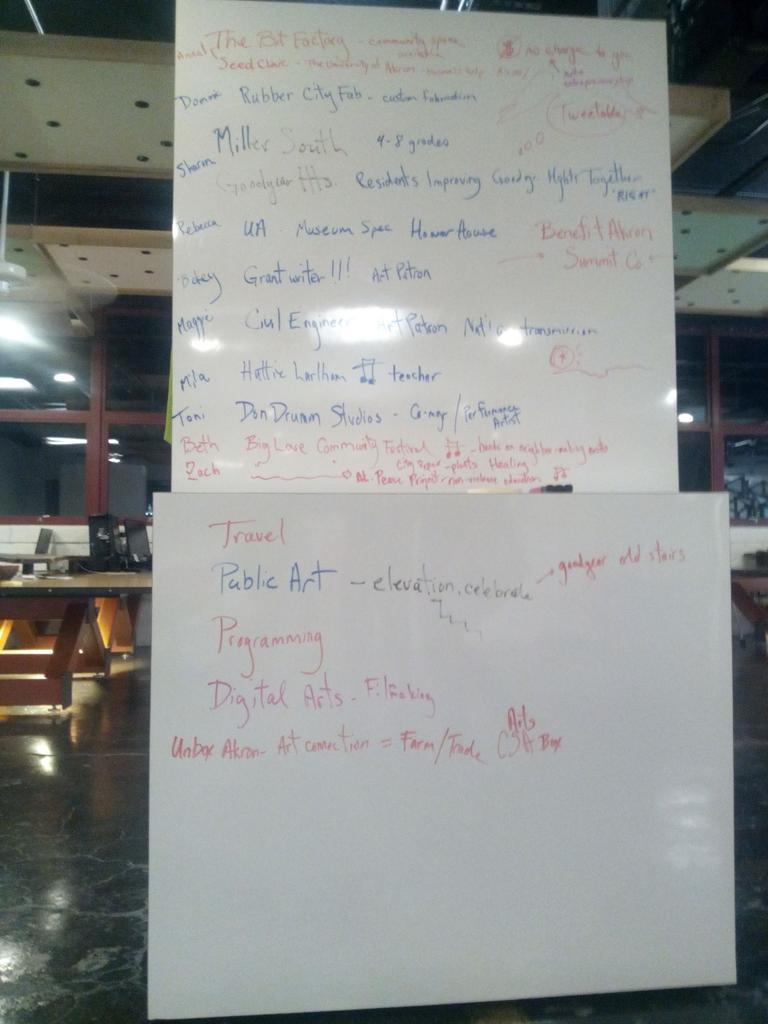 The Bit Factory - community space available $ no charge to you
Seed Clinic - The University of Akron - business help
Donna Rubber City Fab - custom fabrication Tweetable
Sharon Miller South 4-8 grades
Goodyear Hts. Residents Improving Goodyr Hghts Together
"RIGHT"
Rebecca UA Museum Spec Hower House Benefit Akron
Summit Co.
Grant writer!!! Art Patron
Maggie Civil Engineer Art Patron Nat'l transmission
Mila Hattie Larlham teacher
Toni Don Drumm Studios - Co-mgr / Performance Artist
Beth Big Love Community Festival - hands on neighbor-making
Zach Peace Project - non-violence education
Travel
Public Art - elevation, celebrate → goodyear old stairs
Programming
Digital Arts - Filmmaking
Unbox Akron - Art connection = Farm/Trade Arts CSA Box